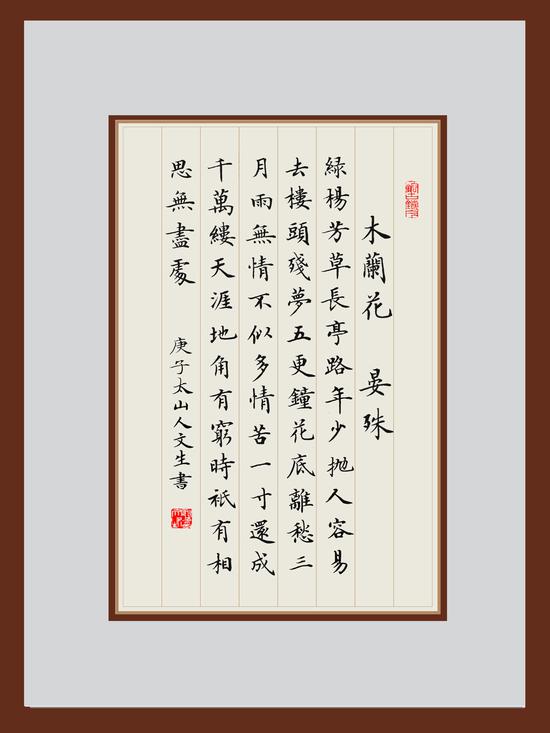 木蘭花 晏殊
緑楊芳草長亭路年少抛人容易
去樓頭殘夢五更鐘花底離愁三
月雨無情不似多情苦一寸還成
千萬縷天涯地角有窮時祇有相
思無盡處 庚子太山人文生書